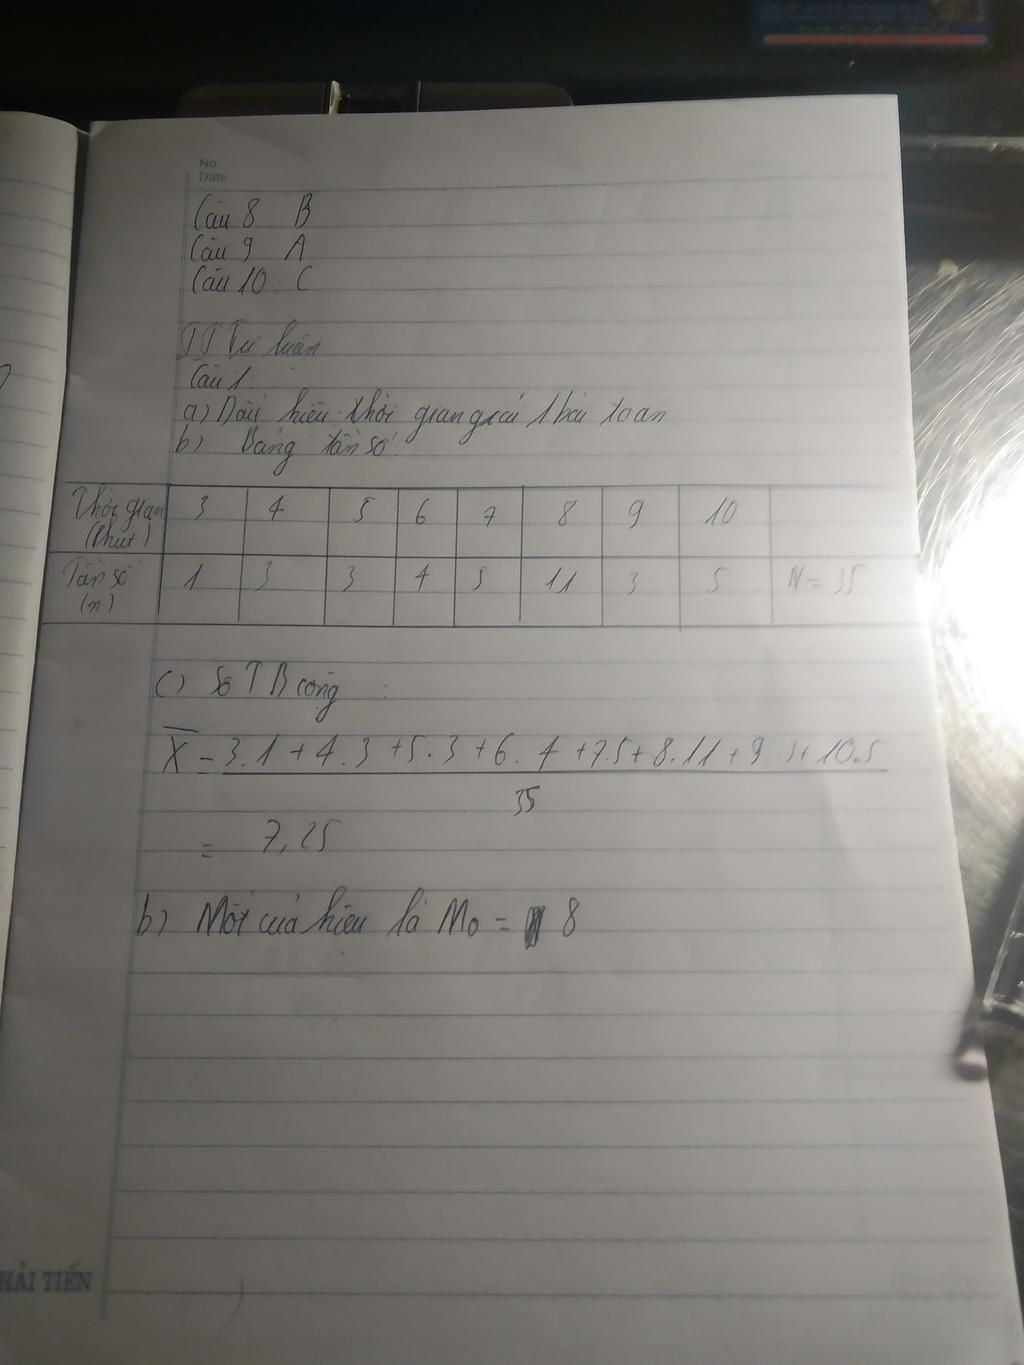 No.
Date
Câu 8 B
Câu 9 A
Câu 10: C
II Tự luận
Câu 1:
a) Dấu hiệu: thời gian giải 1 bài toan
b) Bảng tần số:
Thời gian (Phút) 3 4 5 6 7 8 9 10
Tần số (n) 1 3 3 4 5 11 3 5 N = 35
c) Số TB cộng :
X̄ = 3.1 + 4.3 + 5.3 + 6.4 + 7.5 + 8.11 + 9.3 + 10.5
35
= 7,25
b) Mốt của hiệu là Mo = 8
HẢI TIẾN